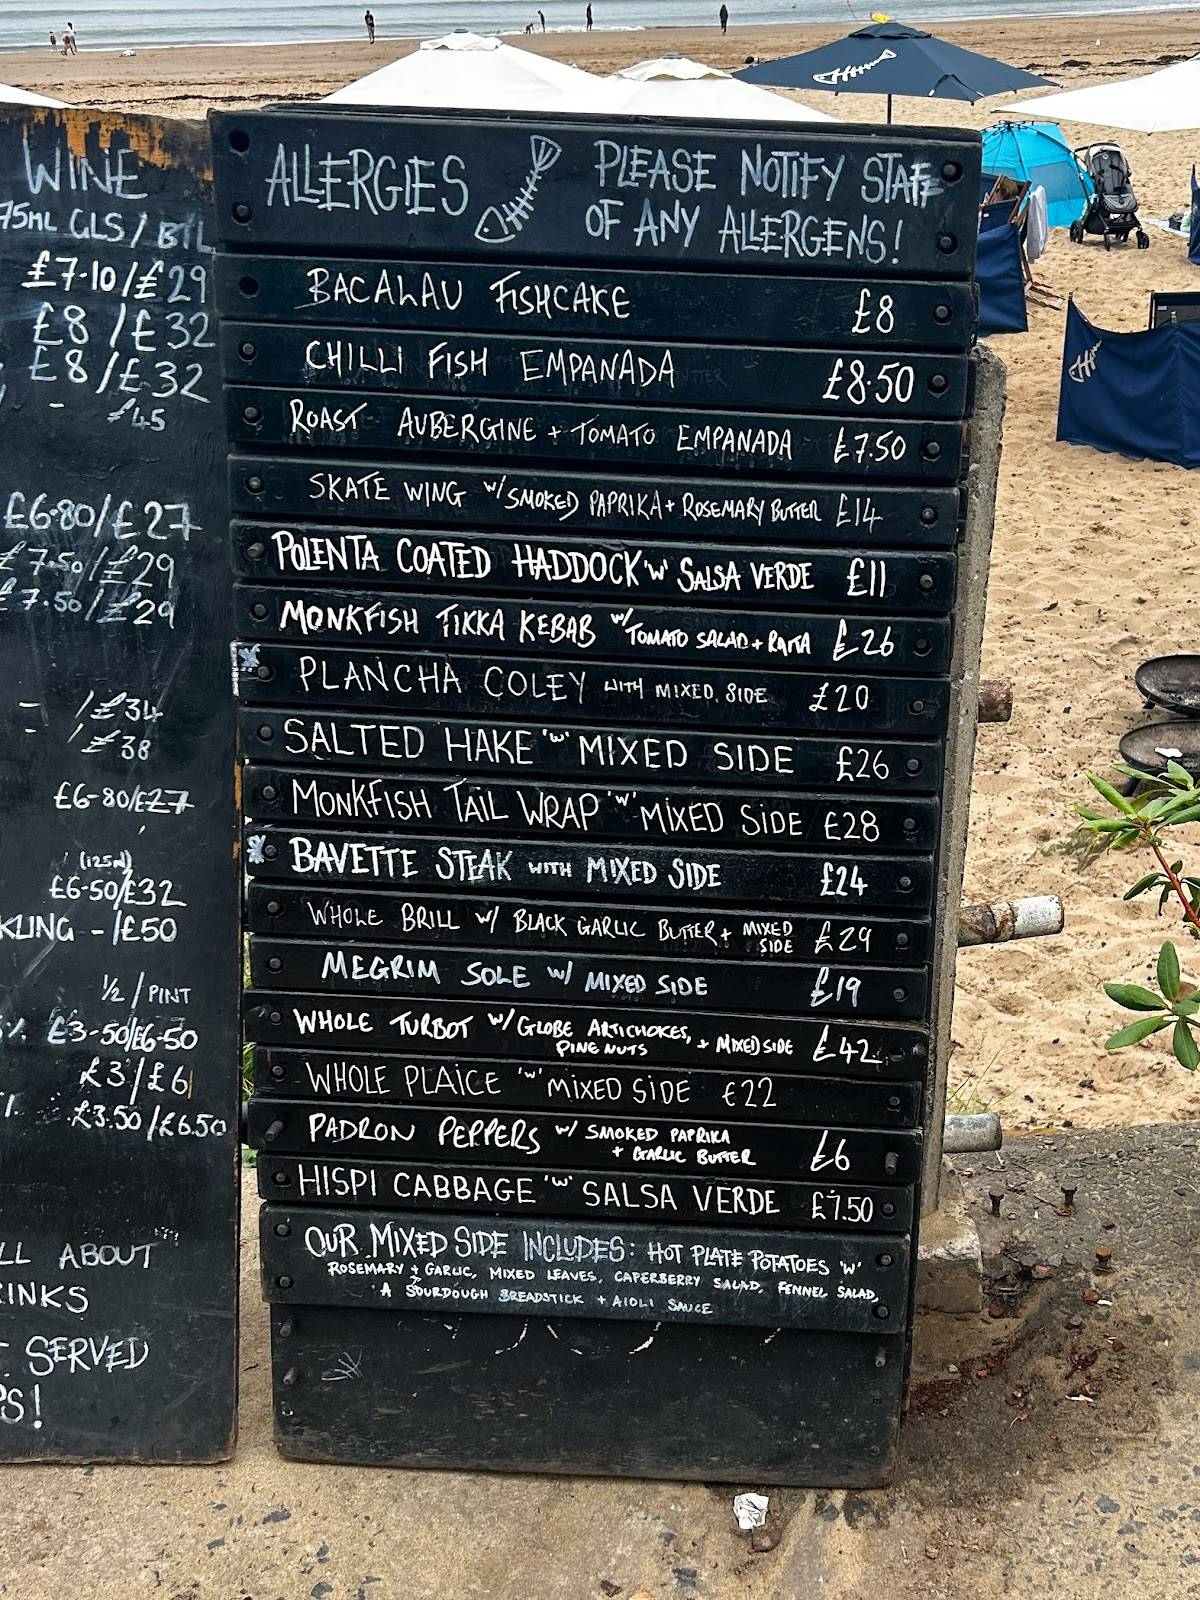 WINE
75ML GLS / BTL
£7.10/£29
£8/£32
£8/£32
- £45
£6.80/£27
£7.50/£29
£7.50/£29
- /£34
- /£38
£6-80/£27
(125ml)
£6-50/£32
KLING - /£50
1/2 / PINT
£3-50/£6-50
£3/£6
£3.50/£6.50
LL ABOUT
INKS
SERVED
PS!
ALLERGIES PLEASE NOTIFY STAFF
OF ANY ALLERGENS!
BACALAU FISHCAKE £8
CHILLI FISH EMPANADA £8.50
ROAST AUBERGINE + TOMATO EMPANADA £7.50
SKATE WING W/ SMOKED PAPRIKA + ROSEMARY BUTTER £14
POLENTA COATED HADDOCK "W" SALSA VERDE £11
MONKFISH TIKKA KEBAB W/ TOMATO SALAD + RAITA £26
PLANCHA COLEY WITH MIXED SIDE £20
SALTED HAKE "W" MIXED SIDE £26
MONKFISH TAIL WRAP "W" MIXED SIDE £28
BAVETTE STEAK WITH MIXED SIDE £24
WHOLE BRILL W/ BLACK GARLIC BUTTER + MIXED SIDE £29
MEGRIM SOLE W/ MIXED SIDE £19
WHOLE TURBOT W/ GLOBE ARTICHOKES, PINE NUTS + MIXED SIDE £42
WHOLE PLAICE "W" MIXED SIDE £22
PADRON PEPPERS W/ SMOKED PAPRIKA + GARLIC BUTTER £6
HISPI CABBAGE "W" SALSA VERDE £7.50
OUR MIXED SIDE INCLUDES: HOT PLATE POTATOES "W"
ROSEMARY + GARLIC, MIXED LEAVES, CAPERBERRY SALAD, FENNEL SALAD,
A SOURDOUGH BREADSTICK + AIOLI SAUCE